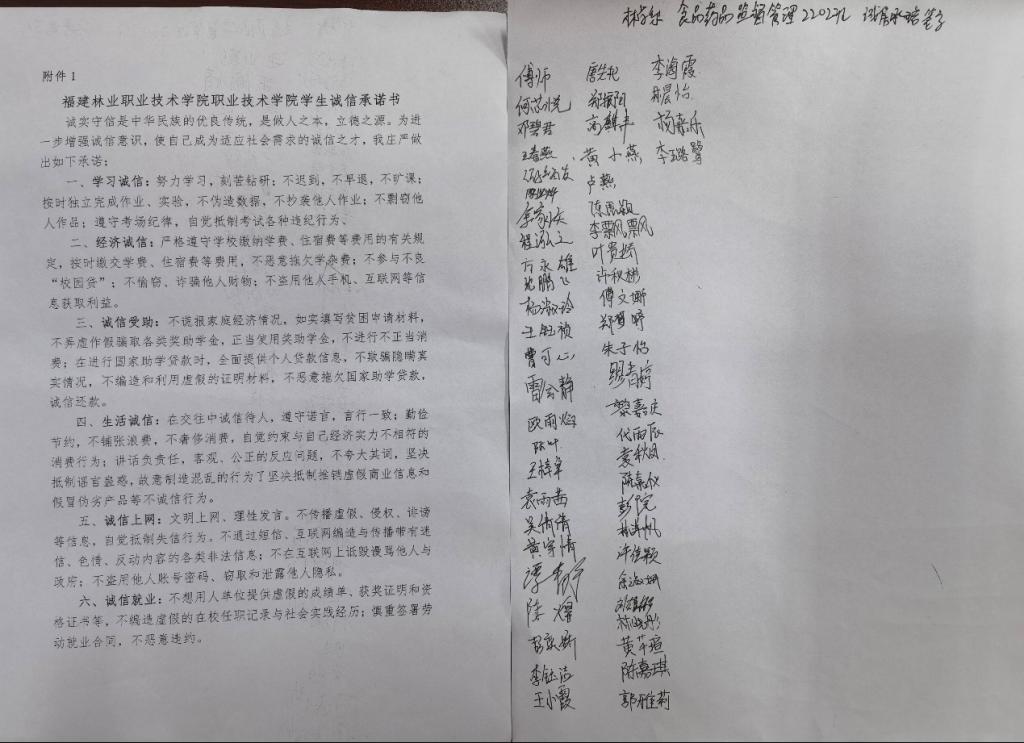 附件 1
福建林业职业技术学院职业技术学院学生诚信承诺书
诚实守信是中华民族的优良传统，是做人之本，立德之源。为进
一步增强诚信意识，使自己成为适应社会需求的诚信之才，我庄严做
出如下承诺：
一、学习诚信：努力学习，刻苦钻研；不迟到，不早退，不旷课；
按时独立完成作业、实验，不伪造数据，不抄袭他人作业；不剽窃他
人作品；遵守考场纪律，自觉抵制考试各种违纪行为。
二、经济诚信：严格遵守学校缴纳学费、住宿费等费用的有关规
定，按时缴交学费、住宿费等费用，不恶意拖欠学杂费；不参与不良
“校园贷”；不偷窃、诈骗他人财物；不盗用他人手机、互联网等信
息获取利益。
三、诚信受助：不谎报家庭经济情况，如实填写贫困申请材料，
不弄虚作假骗取各类奖助学金，正当使用奖助学金，不进行不正当消
费；在进行国家助学贷款时，全面提供个人贷款信息，不欺骗隐瞒真
实情况，不编造和利用虚假的证明材料，不恶意拖欠国家助学贷款，
诚信还款。
四、生活诚信：在交往中诚信待人，遵守诺言，言行一致；勤俭
节约，不铺张浪费，不奢侈消费，自觉约束与自己经济实力不相符的
消费行为；讲话负责任，客观、公正的反应问题，不夸大其词，坚决
抵制谣言蛊惑，故意制造混乱的行为了坚决抵制推销虚假商业信息和
假冒伪劣产品等不诚信行为。
五、诚信上网：文明上网、理性发言。不传播虚假、侵权、诽谤
等信息，自觉抵制失信行为，不通过短信、互联网编造与传播带有迷
信、色情、反动内容的各类非法信息；不在互联网上诋毁谩骂他人与
政府；不盗用他人账号密码、窃取和泄露他人隐私。
六、诚信就业：不想用人单位提供虚假的成绩单、获奖证明和资
格证书等，不编造虚假的在校任职记录与社会实践经历；慎重签署劳
动就业合同，不恶意违约。
食品药品监督管理2202班
傅师
何芯悦
邓碧君
王春燕
程泓文
方永雄
杨淑玲
王钰祯
曹可心
雷会静
欧雨焰
陈叶
王梓卓
袁雨茜
吴倩倩
黄宇情
谭青宁
陈煜
李钰洁
王小霞
高麒尧
黄小燕
卢燕
陈思颖
李飘飘
叶贵娇
许秋彬
傅文娜
朱子怡
黎嘉庆
代雨辰
袁秋凤
陈嘉仪
彭院
许佳颖
林晓彤
黄芊瑄
陈嘉琪
郭雅莉
李海霞
杨嘉乐
李璐莺